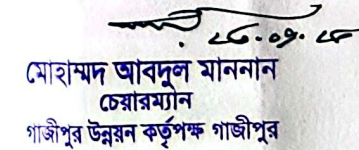 মোহাম্মদ আবদুল মাননান
চেয়ারম্যান
গাজীপুর উন্নয়ন কর্তৃপক্ষ গাজীপুর